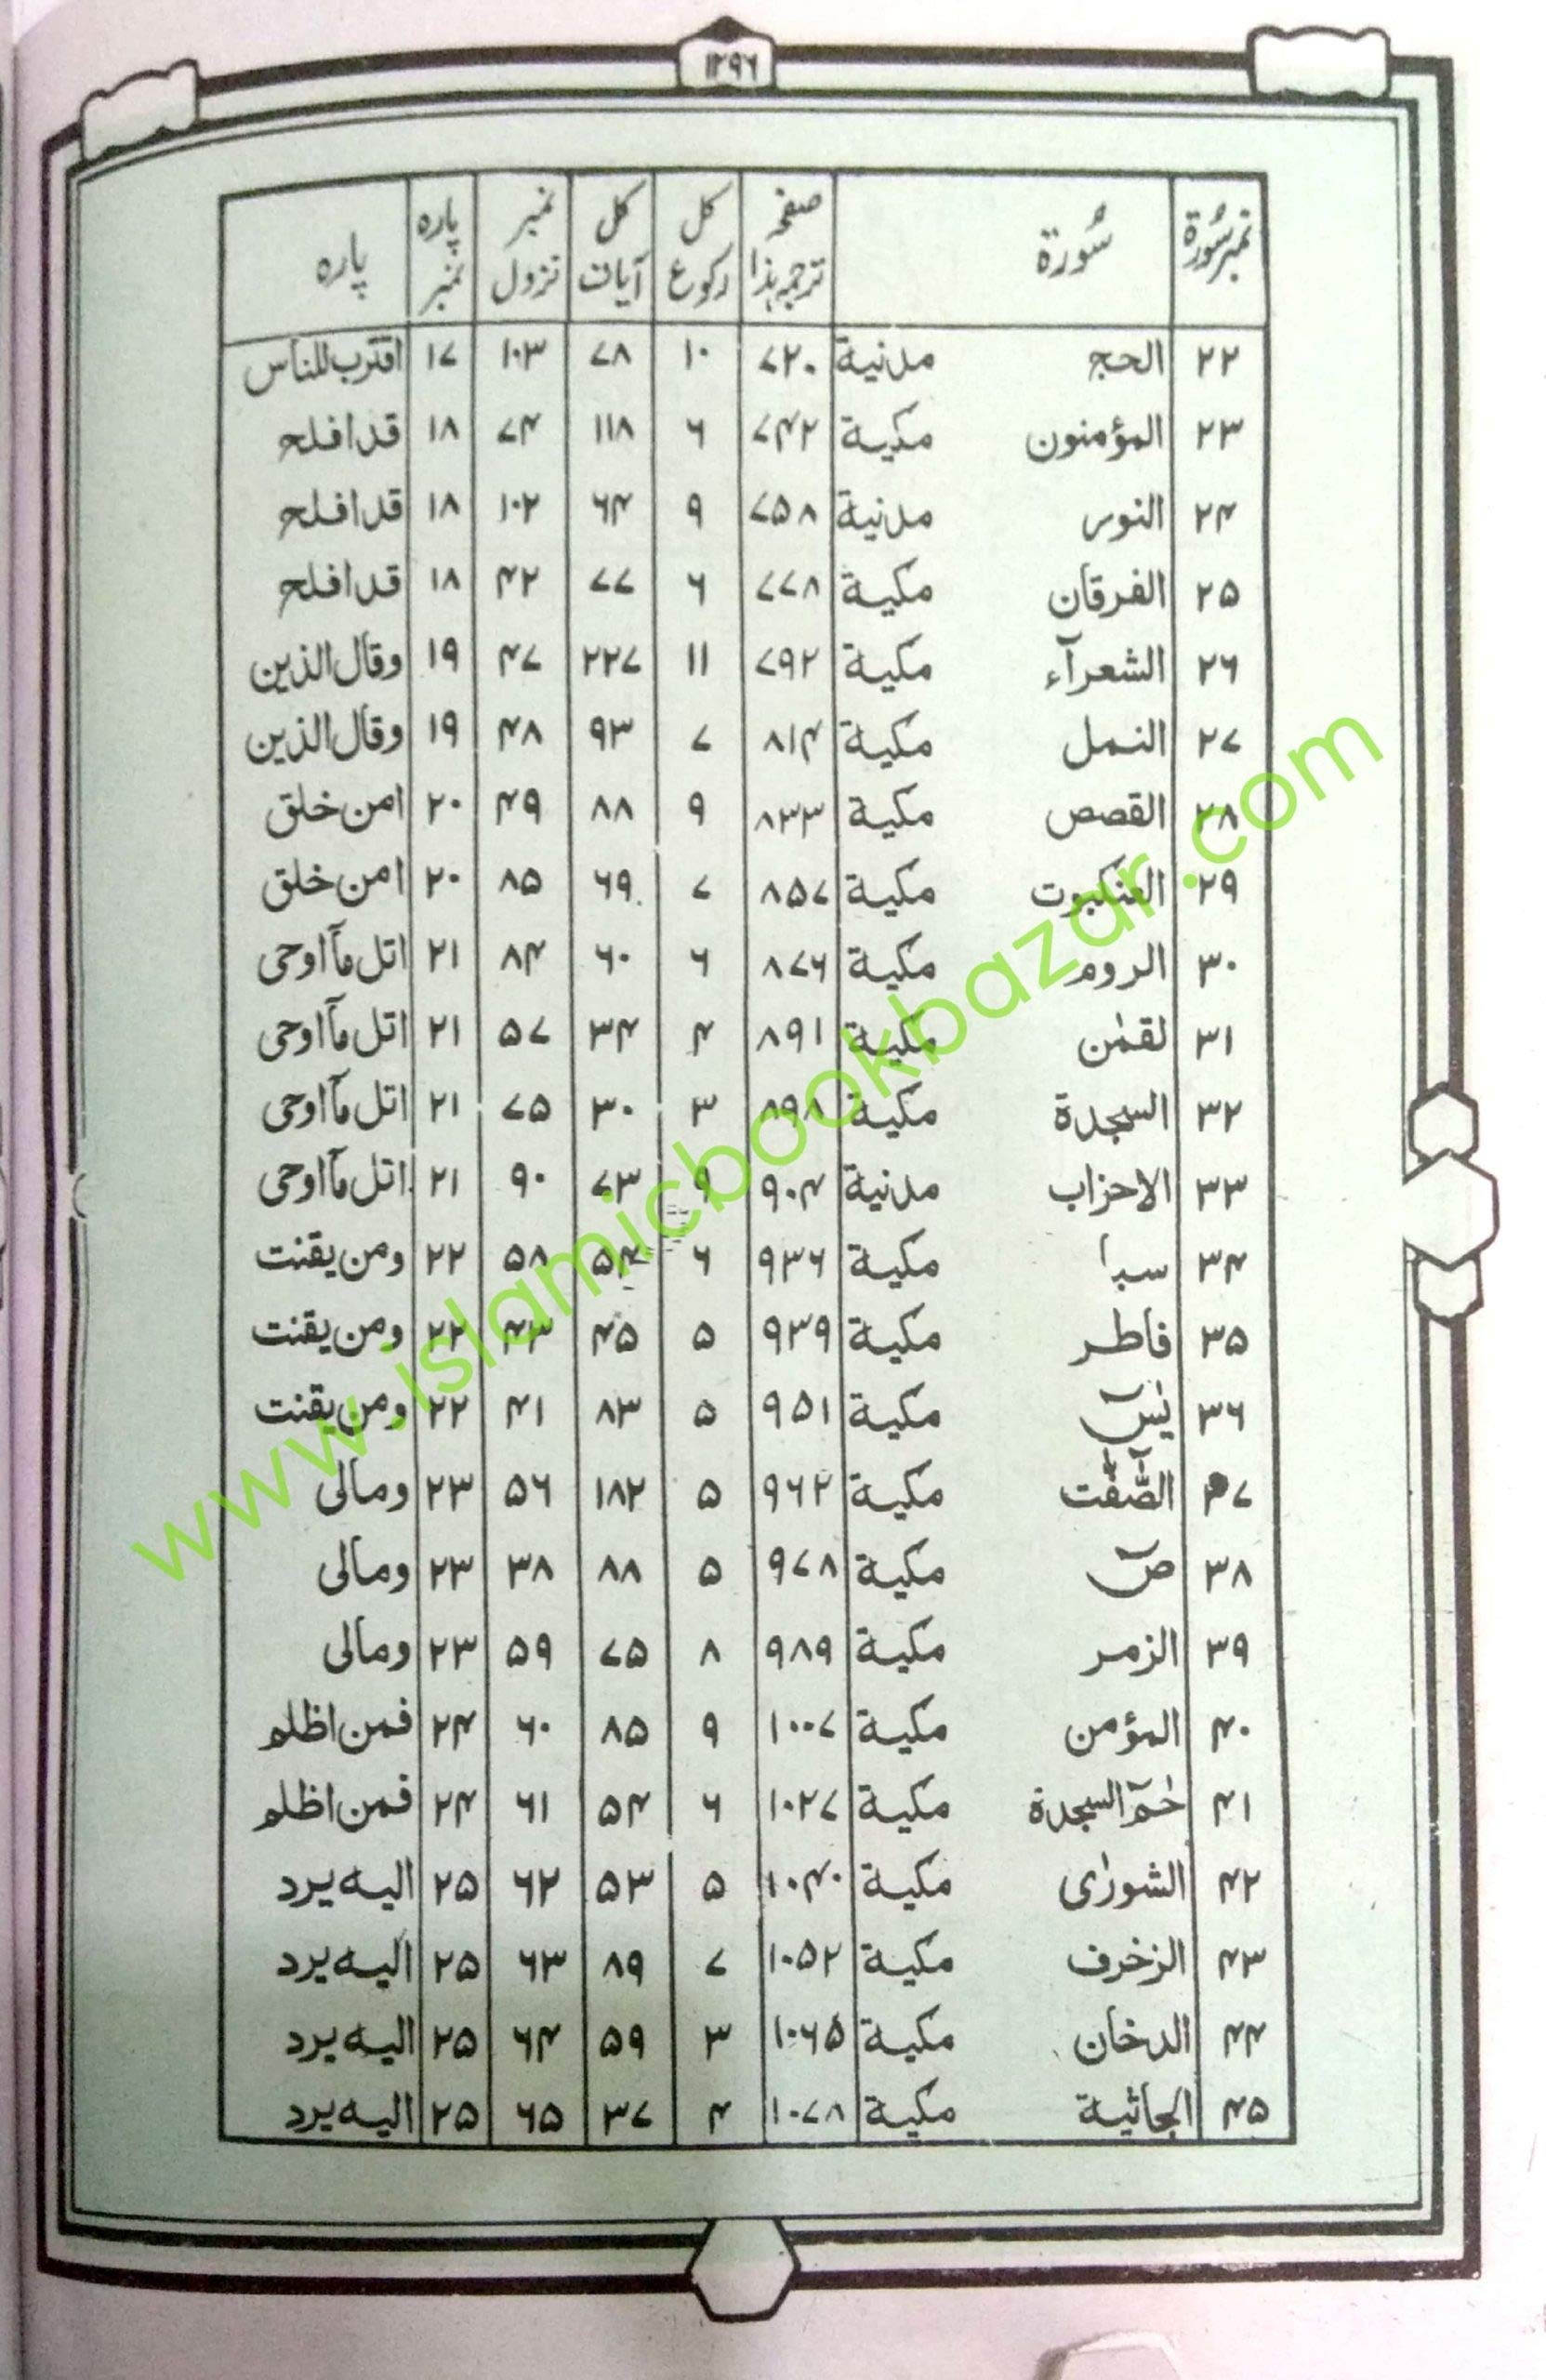 ۱۲۹۶
نمبر سُورۃ سُورۃ صفحہ ترجمہ ہذا کل رکوع کل آیات نمبر نزول پارہ نمبر پارہ
۲۲ الحج مدنية ۷۲۰ ۱۰ ۷۸ ۱۰۳ ۱۷ اقترب للناس
۲۳ المؤمنون مكية ۷۴۲ ۶ ۱۱۸ ۷۴ ۱۸ قد افلح
۲۴ النور مدنية ۷۵۸ ۹ ۶۴ ۱۰۲ ۱۸ قد افلح
۲۵ الفرقان مكية ۷۷۸ ۶ ۷۷ ۴۲ ۱۸ قد افلح
۲۶ الشعرآء مكية ۷۹۲ ۱۱ ۲۲۷ ۴۷ ۱۹ وقال الذين
۲۷ النمل مكية ۸۱۴ ۷ ۹۳ ۴۸ ۱۹ وقال الذين
۲۸ القصص مكية ۸۳۳ ۹ ۸۸ ۴۹ ۲۰ امن خلق
۲۹ العنكبوت مكية ۸۵۷ ۷ ۶۹ ۸۵ ۲۰ امن خلق
۳۰ الروم مكية ۸۷۶ ۶ ۶۰ ۸۴ ۲۱ اتل مآ اوحى
۳۱ لقمٰن مكية ۸۹۱ ۴ ۳۴ ۵۷ ۲۱ اتل مآ اوحى
۳۲ السجدة مكية ۸۹۸ ۳ ۳۰ ۷۵ ۲۱ اتل مآ اوحى
۳۳ الاحزاب مدنية ۹۰۴ ۹ ۷۳ ۹۰ ۲۱ اتل مآ اوحى
۳۴ سبا مكية ۹۳۶ ۶ ۵۴ ۵۸ ۲۲ ومن يقنت
۳۵ فاطر مكية ۹۳۹ ۵ ۴۵ ۴۳ ۲۲ ومن يقنت
۳۶ يٰسٓ مكية ۹۵۱ ۵ ۸۳ ۴۱ ۲۲ ومن يقنت
۳۷ الصّٰٓفّٰت مكية ۹۶۲ ۵ ۱۸۲ ۵۶ ۲۳ ومالى
۳۸ صٓ مكية ۹۷۸ ۵ ۸۸ ۳۸ ۲۳ ومالى
۳۹ الزمر مكية ۹۸۹ ۸ ۷۵ ۵۹ ۲۳ ومالى
۴۰ المؤمن مكية ۱۰۰۷ ۹ ۸۵ ۶۰ ۲۴ فمن اظلم
۴۱ حٰمٓ السجدة مكية ۱۰۲۷ ۶ ۵۴ ۶۱ ۲۴ فمن اظلم
۴۲ الشورٰى مكية ۱۰۴۰ ۵ ۵۳ ۶۲ ۲۵ اليه يرد
۴۳ الزخرف مكية ۱۰۵۲ ۷ ۸۹ ۶۳ ۲۵ اليه يرد
۴۴ الدخان مكية ۱۰۶۵ ۳ ۵۹ ۶۴ ۲۵ اليه يرد
۴۵ الجاثية مكية ۱۰۷۸ ۴ ۳۷ ۶۵ ۲۵ اليه يرد
www.islamicbookbazar.com